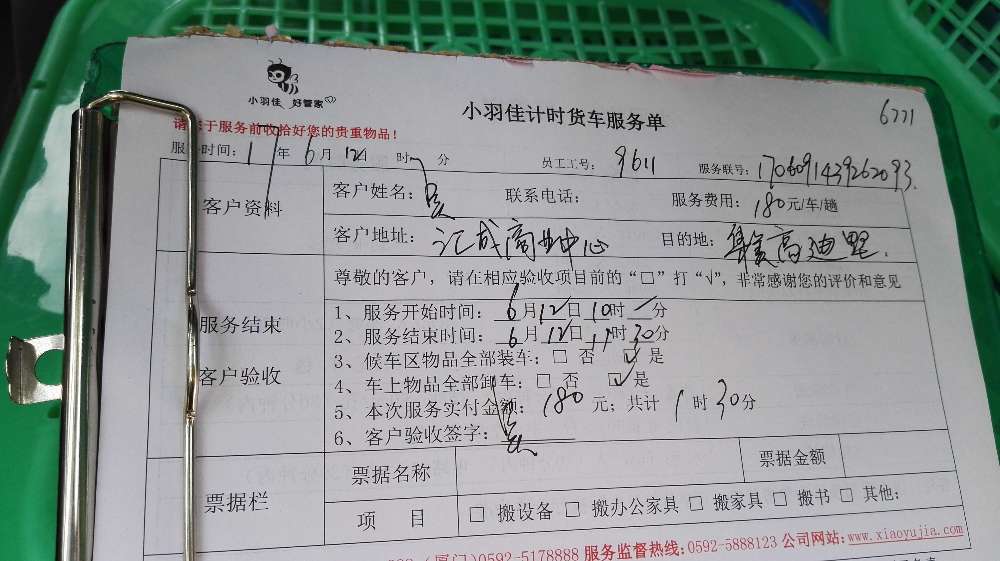 小羽佳 好管家
小羽佳计时货车服务单
6771
请于服务前收拾好您的贵重物品!
服务时间: 17年 6月 12日 时 分 员工工号: 9611 服务联号: 1706091439262093
客户资料
客户姓名: 吴 联系电话: 服务费用: 180元/车/趟
客户地址: 汇成商业中心 目的地: 集美高迪里
尊敬的客户,请在相应验收项目前的“□”打“√”,非常感谢您的评价和意见
服务结束
客户验收
1、服务开始时间: 6月12日10时 分
2、服务结束时间: 6月12日11时30分
3、候车区物品全部装车: □ 否 ☑ 是
4、车上物品全部卸车: □ 否 ☑ 是
5、本次服务实付金额: 180 元; 共计 1 时 30分
6、客户验收签字: 吴
票据栏
票据名称 票据金额
项 目 □ 搬设备 □ 搬办公家具 □ 搬家具 □ 搬书 □ 其他:
(厦门)0592-5178888 服务监督热线:0592-5888123 公司网站:www.xiaoyujia.com